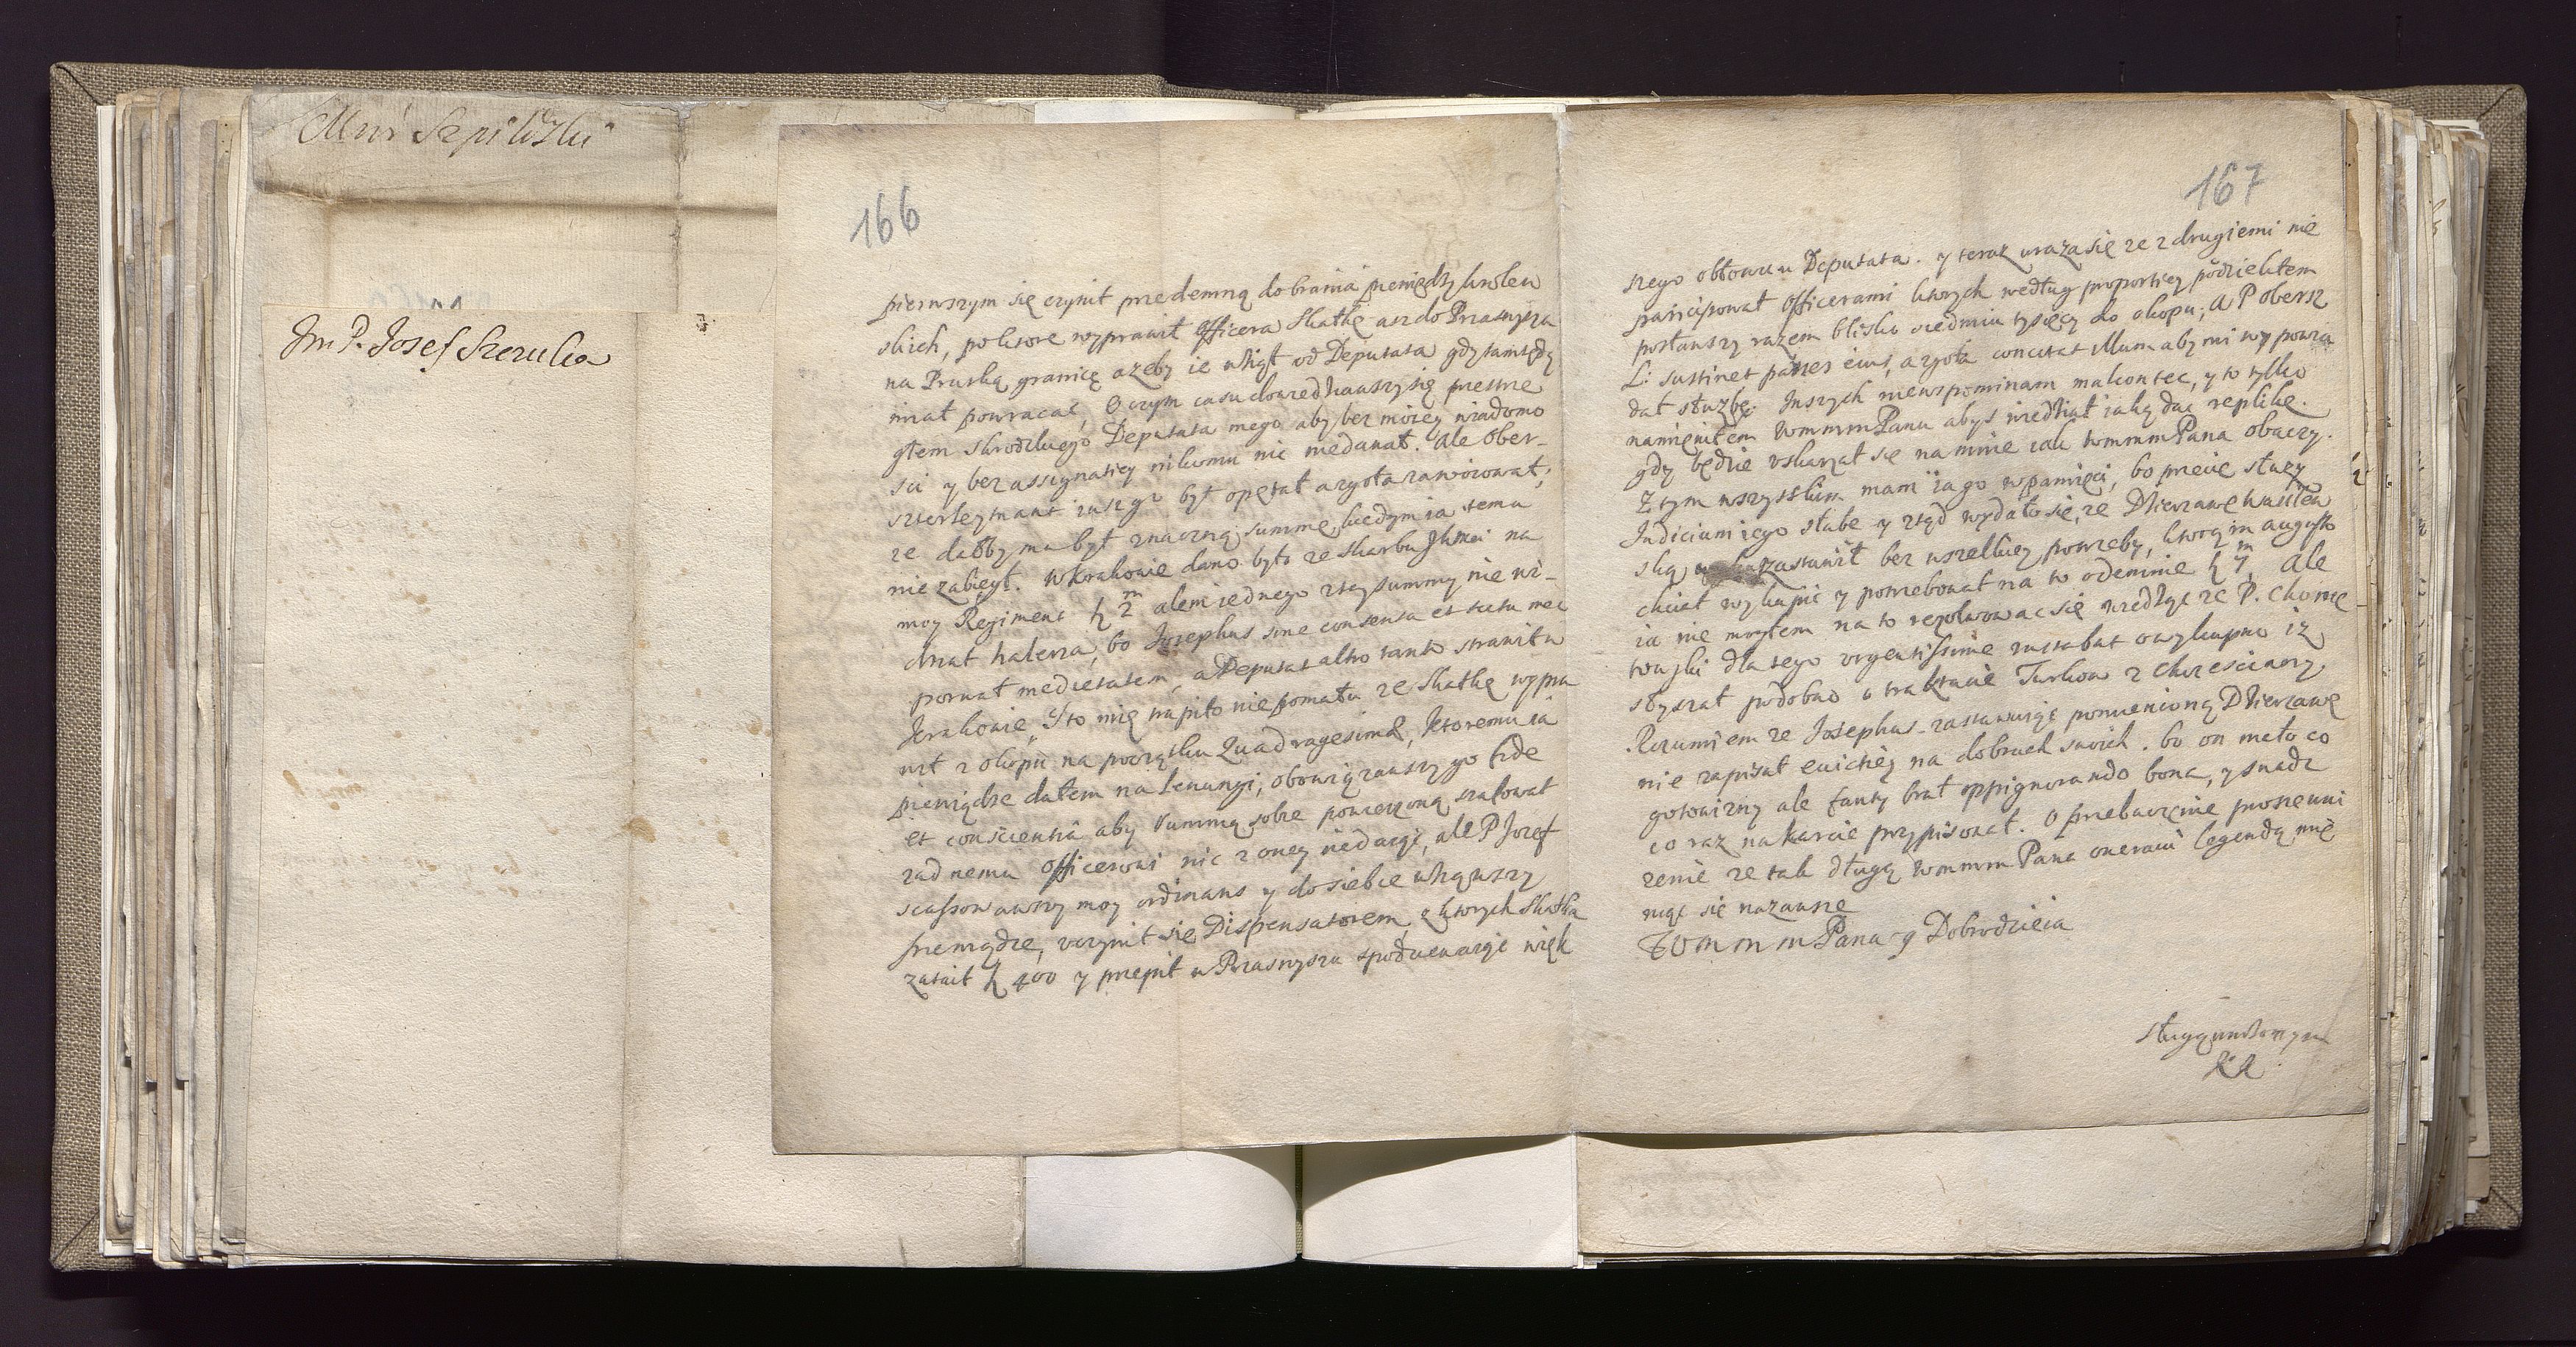 Jm P. Josef Szczuka
166
pierwszym się czynił przedemną do brania pieniędzy krolew
skich, po ktore wyprawił Officera Skatkę asz do Prasnysza
na Pruską granicę azeby ie wziął od Deputata gdy tamtędy
miał powracać, O czym casu dowiedziawszy się przestrze
głem Deputata mego aby bez moiey wiadomo
sci y bez assygnatiey nikomu nic niedawał. Ale Ober-
szterleytnant iusz go był opętał azgoła zawoiował,
ze dałby mu był znaczną summę, kiedym ia temu
nie zabiegł. W Krakowie dano było ze Skarbu na
moy Regiment 2 m alem iednego z tey summy nie wi-
dział halerza, bo Josephus sine consensu et scitu meo
porwał medietatem, a Deputat altro tanto strawił w
Krakowie. Y to mię trapiło niepomału ze Skatkę wypra
wił z okopu na początku Quadragesimæ, ktoremu ia
pieniądze dałem na Lenungi, obowiązawszy go fide
et conscientiâ aby Summą sobie powierzoną szafował
zadnemu Officerowi nic z oney niedaiąc, ale P Jozef
scassowawszy moy ordinans y do siebie wziąwszy
pieniądze, uczynił się Dispensatorem, z ktorych Skatka
zataił 400 y przepił w Prasnyszu spodziewaiąc więk
167
szego obłowu u Deputata. y teraz uraza się ze z drugiemi nie
participował Officerami ktorych według proportiey podzieliłem
posławszy razem blisko siedmiu tysięcy do okopu; a P Obersz
L: sustinet partes eius, azgoła concitat illum aby mi wypowie
dał słuzbę. Inszych niewspominam malcontec, y to tylko
namieniłem WmmmPanu abys wiedział iaką dac replikę.
gdy będzie uskarzał się na mnie iak WmmmPana obaczy.
Z tym wszystkim mam ia go w pamięci, bo przecię słuzy
Judicium iego słabe y rząd wydało się, ze Dzierzawę
ską zastawił bez wszelkiey potrzeby, ktorą in Augusto
chciał wykupic y potrzebował na to odemnie 7 m, Ale
ia nie mogłem na to rezolwowac się wiedząc ze P. Chomę
towski dla tego urgentissime instabat o wykupno iz
słyszał podobno o traktacie Turkow z Chrzescianny
Rozumiem ze Josephus zastawuiąc pomienioną Dzierzawę
nie zapisał euictiey na dobrach swoich. bo on mało co
gotowizny ale fanty brał oppignorando bona, y snadz
co raz na karcie przypisował. O przebaczenie proszę uni
zenie ze tak długą WmmmPana onerowi legendą mie
niąc się nazawsze
WmmmPana y Dobrodzieia
sługą unizonym